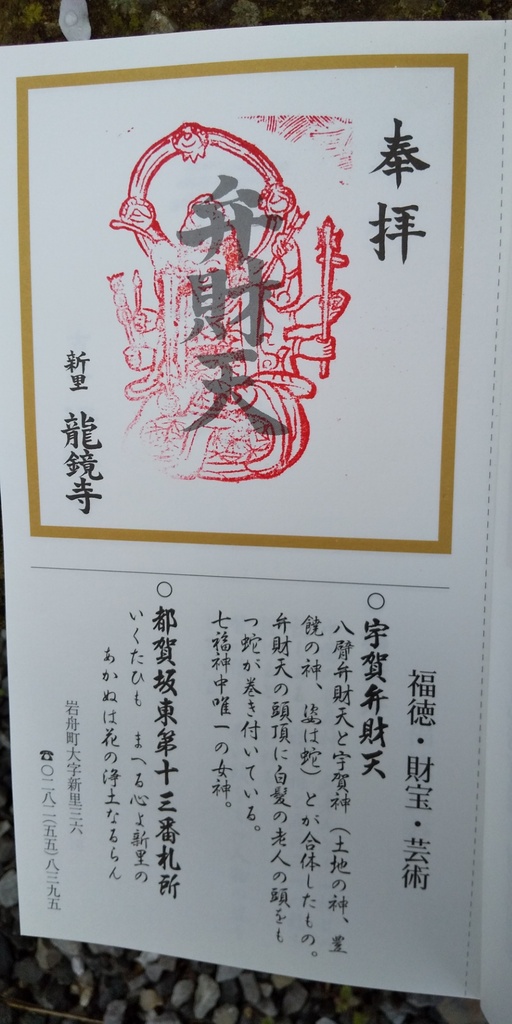 奉拝
弁財天
新里 龍鏡寺
福徳・財宝・芸術
○宇賀弁財天
八臂弁財天と宇賀神（土地の神、豊
饒の神、姿は蛇）とが合体したもの。
弁財天の頭頂に白髪の老人の頭をも
つ蛇が巻き付いている。
七福神中唯一の女神。
○都賀坂東第十三番札所
いくたひも まへる心よ新里の
あかぬは花の浄土なるらん
岩舟町大字新里三六
☎〇二八二(五五)八三九五